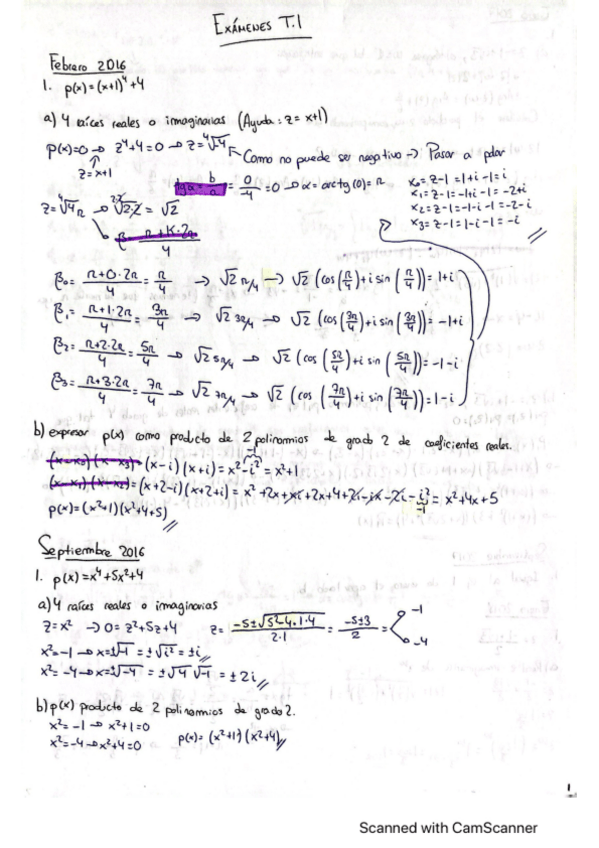 EXÁMENES T.1
Febrero 2016
1. p(x)=(x+1)⁴+4
a) 4 raíces reales o imaginarias (Ayuda: z = x+1)
p(x)=0 → z⁴+4=0 → z=⁴√-4
z=x+1
Como no puede ser negativo → Pasar a polar
tgα = b/a = 0/-4 = 0 → α = arctg(0) = π
x₀= z-1 = 1+i-1 = i
x₁= z-1 = -1+i-1 = -2+i
x₂= z-1 = -1-i-1 = -2-i
x₃= z-1 = 1-i-1 = -i
z=⁴√4π → √2·2 = √2
β = π+K·2π/4
β₀= π+0·2π/4 = π/4 → √2 π/4 → √2 (cos(π/4)+i sin(π/4)) = 1+i
β₁= π+1·2π/4 = 3π/4 → √2 3π/4 → √2 (cos(3π/4)+i sin(3π/4)) = -1+i
β₂= π+2·2π/4 = 5π/4 → √2 5π/4 → √2 (cos(5π/4)+i sin(5π/4)) = -1-i
β₃= π+3·2π/4 = 7π/4 → √2 7π/4 → √2 (cos(7π/4)+i sin(7π/4)) = 1-i
b) expresar p(x) como producto de 2 polinomios de grado 2 de coeficientes reales.
(x-x₀)(x-x₃)=(x-i)(x+i)= x²-i²= x²+1
(x-x₁)(x-x₂)=(x+2-i)(x+2+i)= x²+2x+xi+2x+4+2i-xi-2i-i²= x²+4x+5
-1
p(x)=(x²+1)(x²+4+5)
Septiembre 2016
1. p(x)=x⁴+5x²+4
a) 4 raíces reales o imaginarias
z=x² → 0=z²+5z+4 z= -5±√5²-4·1·4/2·1 = -5±3/2 = -1
-4
x²=-1 → x=±√-1 = ±√i² = ±i
x²=-4 → x=±√-4 = ±√4 √-1 = ±2i
b) p(x) producto de 2 polinomios de grado 2.
x²=-1 → x²+1=0
x²=-4 → x²+4=0 p(x)= (x²+1)(x²+4)
1
Scanned with CamScanner